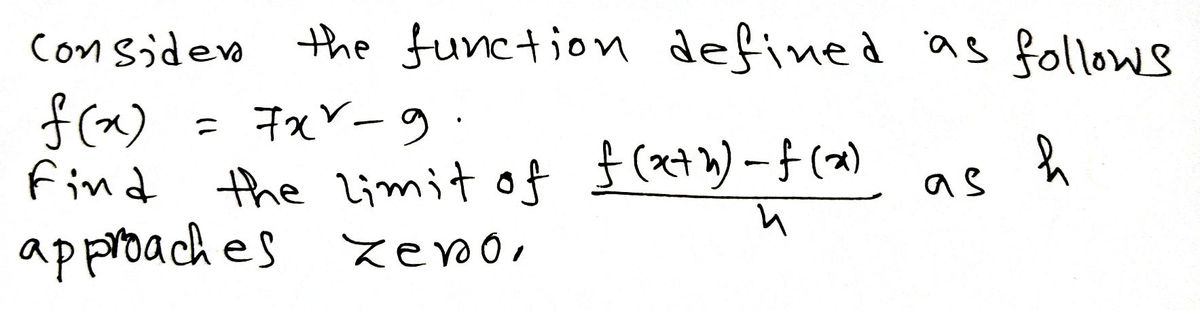 Consider the function defined as follows
f(x) = 7x² - 9.
Find the limit of \frac{f(x+h) - f(x)}{h} as h
approaches zero.